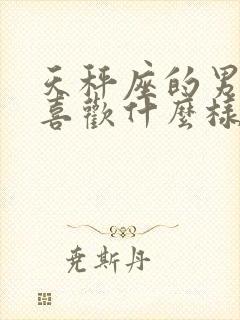 天秤座的男
喜歡什麼樣
堯斯丹